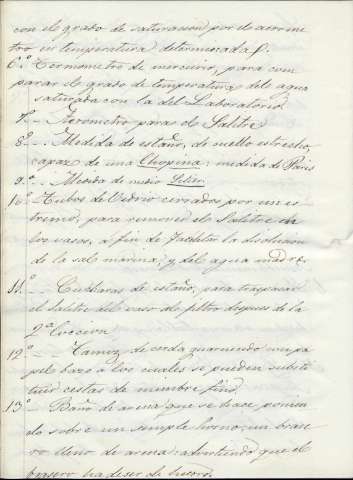 con el grado de saturacion por el aerome
tro en temperatura determinada
6.º Termometro de mercurio, para com
parar el grado de temperatura del agua
saturada con la del Laboratorio
7.º - Aerometro para el Salitre
8.º - Medida de estaño, de cuello estrecho,
capaz de una Chopina: medida de Paris
9.º - Medida de medio
10 Tubos de Vidrio cerrados por un es
tremo, para remover el Salitre en
los vasos, a fin de facilitar la disolucion
de la sal marina, y del agua madre.
11.º - Cucharas de estaño, para traspasar
el salitre del vaso de filtro despues de la
2.ª Coccion
12.º - Tamiz de cerda guarnecido con pa
pel bazo a los cuales se pueden substi
tuir cestas de mimbre fino
13.º - Baño de arena que se hace ponien
do sobre un simple horno, un brase
ro lleno de arena: advirtiendo que el
brasero ha de ser de hierro.